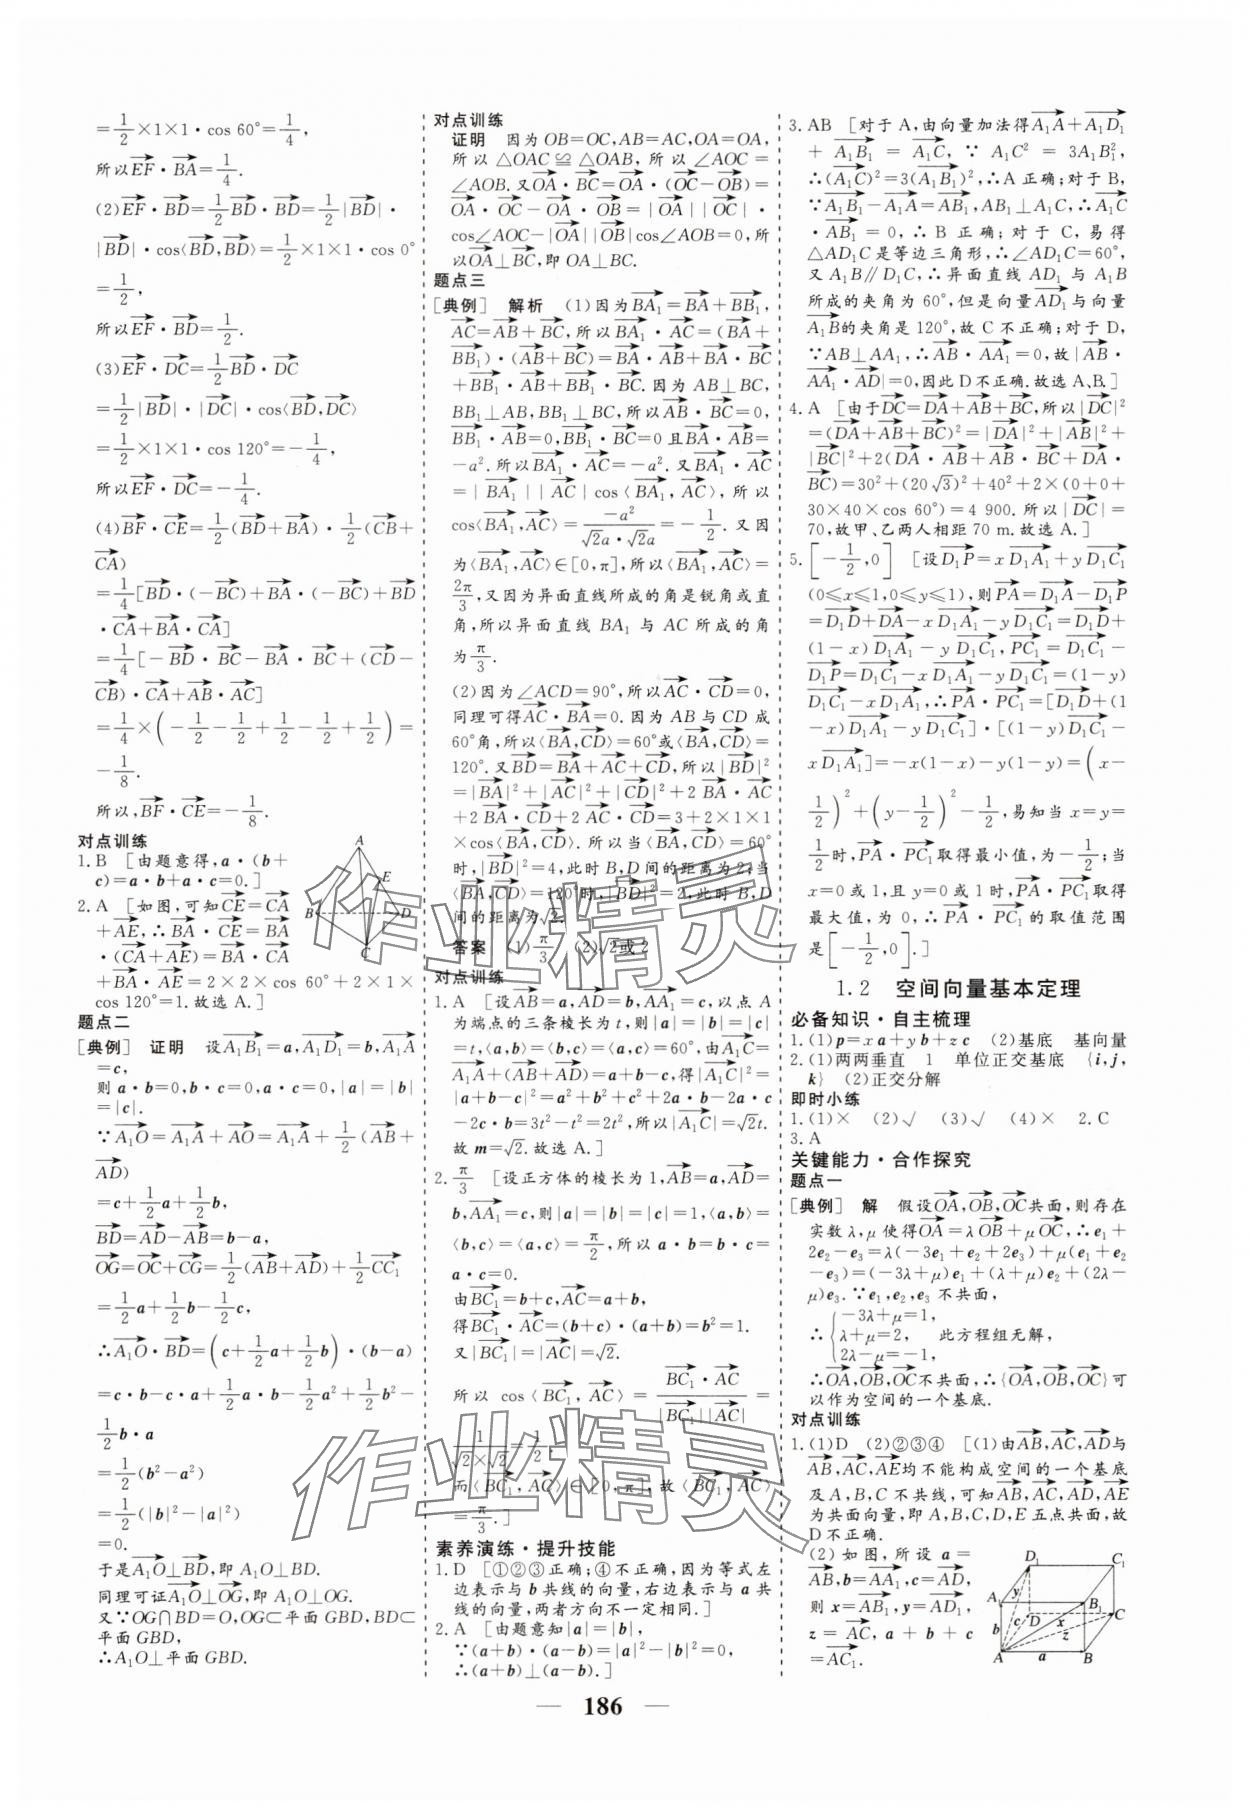 =1/2×1×1·cos 60°=1/4,
所以EF·BA=1/4.
(2)EF·BD=1/2BD·BD=1/2|BD|·
|BD|·cos⟨BD,BD⟩=1/2×1×1·cos 0°
=1/2,
所以EF·BD=1/2.
(3)EF·DC=1/2BD·DC
=1/2|BD|·|DC|·cos⟨BD,DC⟩
=1/2×1×1·cos 120°=-1/4,
所以EF·DC=-1/4.
(4)BF·CE=1/2(BD+BA)·1/2(CB+
CA)
=1/4[BD·(-BC)+BA·(-BC)+BD
·CA+BA·CA]
=1/4[-BD·BC-BA·BC+(CD-
CB)·CA+AB·AC]
=1/4×(-1/2-1/2+1/2-1/2+1/2)=
-1/8.
所以,BF·CE=-1/8.
对点训练
1.B [由题意得,a·(b+
c)=a·b+a·c=0.]
2.A [如图,可知CE=CA
+AE,∴BA·CE=BA
·(CA+AE)=BA·CA
+BA·AE=2×2×cos 60°+2×1×
cos 120°=1.故选A.]
A
E
B
D
C
题点二
[典例] 证明 设A₁B₁=a,A₁D₁=b,A₁A
=c,
则a·b=0,b·c=0,a·c=0,|a|=|b|
=|c|.
∵A₁O=A₁A+AO=A₁A+1/2(AB+
AD)
=c+1/2a+1/2b,
BD=AD-AB=b-a,
OG=OC+CG=1/2(AB+AD)+1/2CC₁
=1/2a+1/2b-1/2c,
∴A₁O·BD=(c+1/2a+1/2b)·(b-a)
=c·b-c·a+1/2a·b-1/2a²+1/2b²-
1/2b·a
=1/2(b²-a²)
=1/2(|b|²-|a|²)
=0.
于是A₁O⊥BD,即A₁O⊥BD.
同理可证A₁O⊥OG,即A₁O⊥OG.
又∵OG∩BD=O,OG⊂平面GBD,BD⊂
平面GBD,
∴A₁O⊥平面GBD.
对点训练
证明 因为OB=OC,AB=AC,OA=OA,
所以△OAC≌△OAB,所以∠AOC=
∠AOB.又OA·BC=OA·(OC-OB)=
OA·OC-OA·OB=|OA||OC|·
cos∠AOC-|OA||OB|cos∠AOB=0,所
以OA⊥BC,即OA⊥BC.
题点三
[典例] 解析 (1)因为BA₁=BA+BB₁,
AC=AB+BC,所以BA₁·AC=(BA+
BB₁)·(AB+BC)=BA·AB+BA·BC
+BB₁·AB+BB₁·BC.因为AB⊥BC,
BB₁⊥AB,BB₁⊥BC,所以AB·BC=0,
BB₁·AB=0,BB₁·BC=0且BA·AB=
-a².所以BA₁·AC=-a².又BA₁·AC
=|BA₁||AC|cos⟨BA₁,AC⟩,所以
cos⟨BA₁,AC⟩=-a²/(√2a·√2a)=-1/2.又因
为⟨BA₁,AC⟩∈[0,π],所以⟨BA₁,AC⟩=
2π/3,又因为异面直线所成的角是锐角或直
角,所以异面直线BA₁与AC所成的角
为π/3.
(2)因为∠ACD=90°,所以AC·CD=0,
同理可得AC·BA=0.因为AB与CD成
60°角,所以⟨BA,CD⟩=60°或⟨BA,CD⟩=
120°.又BD=BA+AC+CD,所以|BD|²
=|BA|²+|AC|²+|CD|²+2BA·AC
+2BA·CD+2AC·CD=3+2×1×1
×cos⟨BA,CD⟩.所以当⟨BA,CD⟩=60°
时,|BD|²=4,此时B,D间的距离为2;当
⟨BA,CD⟩=120°时,|BD|²=2,此时B,D
间的距离为√2.
答案 (1)π/3 (2)√2或2
对点训练
1.A [设AB=a,AD=b,AA₁=c,以点A
为端点的三条棱长为t,则|a|=|b|=|c|
=t,⟨a,b⟩=⟨b,c⟩=⟨a,c⟩=60°,由A₁C=
A₁A+(AB+AD)=a+b-c,得|A₁C|²=
|a+b-c|²=a²+b²+c²+2a·b-2a·c
-2c·b=3t²-t²=2t²,所以|A₁C|=√2t.
故m=√2.故选A.]
2.π/3 [设正方体的棱长为1,AB=a,AD=
b,AA₁=c,则|a|=|b|=|c|=1,⟨a,b⟩=
⟨b,c⟩=⟨a,c⟩=π/2,所以a·b=b·c=
a·c=0.
由BC₁=b+c,AC=a+b,
得BC₁·AC=(b+c)·(a+b)=b²=1.
又|BC₁|=|AC|=√2.
所以cos⟨BC₁,AC⟩=BC₁·AC/(|BC₁||AC|)=
1/(√2×√2)=1/2.
而⟨BC₁,AC⟩∈[0,π],故⟨BC₁,AC⟩=
π/3.]
素养演练·提升技能
1.D [①②③正确;④不正确,因为等式左
边表示与b共线的向量,右边表示与a共
线的向量,两者方向不一定相同.]
2.A [由题意知|a|=|b|,
∵(a+b)·(a-b)=|a|²-|b|²=0,
∴(a+b)⊥(a-b).]
3.AB [对于A,由向量加法得A₁A+A₁D₁
+A₁B₁=A₁C,∵A₁C²=3A₁B₁²,
∴(A₁C)²=3(A₁B₁)²,∴A正确;对于B,
∵A₁B₁-A₁A=AB₁,AB₁⊥A₁C,∴A₁C
·AB₁=0,∴B正确;对于C,易得
△AD₁C是等边三角形,∴∠AD₁C=60°,
又A₁B∥D₁C,∴异面直线AD₁与A₁B
所成的夹角为60°,但是向量AD₁与向量
A₁B的夹角是120°,故C不正确;对于D,
∵AB⊥AA₁,∴AB·AA₁=0,故|AB·
AA₁·AD|=0,因此D不正确.故选A、B.]
4.A [由于DC=DA+AB+BC,所以|DC|²
=(DA+AB+BC)²=|DA|²+|AB|²+
|BC|²+2(DA·AB+AB·BC+DA·
BC)=30²+(20√3)²+40²+2×(0+0+
30×40×cos 60°)=4 900.所以|DC|=
70,故甲、乙两人相距70 m.故选A.]
5.[-1/2,0] [设D₁P=xD₁A₁+yD₁C₁
(0≤x≤1,0≤y≤1),则PA=D₁A-D₁P
=D₁D+DA-xD₁A₁-yD₁C₁=D₁D+
(1-x)D₁A₁-yD₁C₁,PC₁=D₁C₁-
D₁P=D₁C₁-xD₁A₁-yD₁C₁=(1-y)
D₁C₁-xD₁A₁,∴PA·PC₁=[D₁D+(1
-x)D₁A₁-yD₁C₁]·[(1-y)D₁C₁-
xD₁A₁]=-x(1-x)-y(1-y)=(x-
1/2)²+(y-1/2)²-1/2,易知当x=y=
1/2时,PA·PC₁取得最小值,为-1/2;当
x=0或1,且y=0或1时,PA·PC₁取得
最大值,为0,∴PA·PC₁的取值范围
是[-1/2,0].]
1.2 空间向量基本定理
必备知识·自主梳理
1.(1)p=xa+yb+zc (2)基底 基向量
2.(1)两两垂直 1 单位正交基底 {i,j,
k} (2)正交分解
即时小练
1.(1)× (2)√ (3)√ (4)× 2.C
3.A
关键能力·合作探究
题点一
[典例] 解 假设OA,OB,OC共面,则存在
实数λ,μ使得OA=λOB+μOC,∴e₁+
2e₂-e₃=λ(-3e₁+e₂+2e₃)+μ(e₁+e₂
-e₃)=(-3λ+μ)e₁+(λ+μ)e₂+(2λ-
μ)e₃.∵e₁,e₂,e₃不共面,
∴{-3λ+μ=1,
λ+μ=2, 此方程组无解,
2λ-μ=-1,
∴OA,OB,OC不共面,∴{OA,OB,OC}可
以作为空间的一个基底.
对点训练
1.(1)D (2)②③④ [(1)由AB,AC,AD与
AB,AC,AE均不能构成空间的一个基底
及A,B,C不共线,可知AB,AC,AD,AE
为共面向量,即A,B,C,D,E五点共面,故
D不正确.
(2)如图,所设a=
AB,b=AA₁,c=AD,
则x=AB₁,y=AD₁,
z=AC,a+b+c
=AC₁.
D₁
C₁
A₁
B₁
y
x
b
c
D
C
z
A
a
B
186
作业精灵
作业精灵